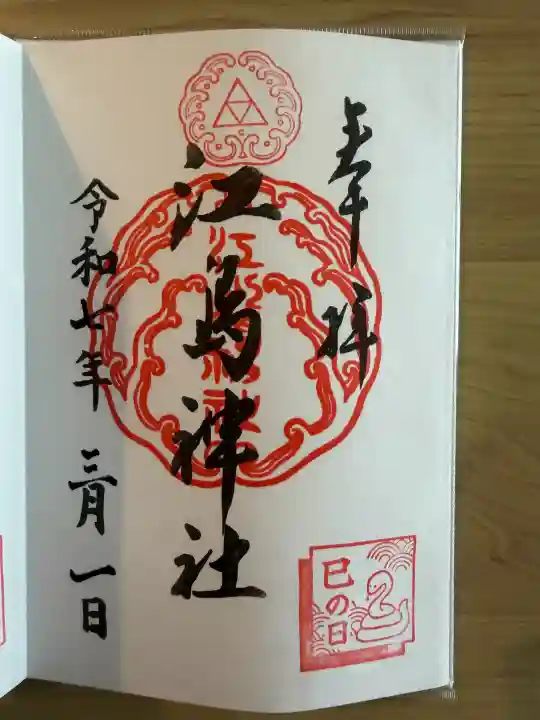 奉拝
江島神社
令和七年 三月一日
巳の日